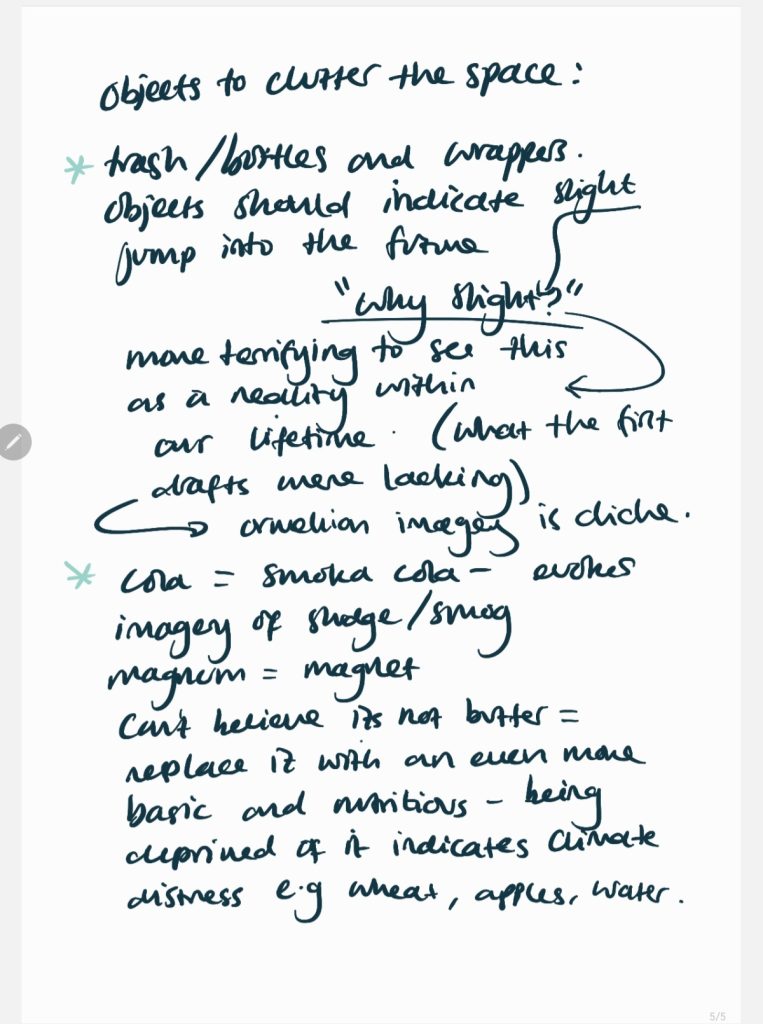 Objects to clutter the space:
* trash/bottles and wrappers.
objects should indicate slight
jump into the future
"Why slight?"
more terrifying to see this
as a reality within
our lifetime. (what the first
drafts were lacking)
orwellian imagery is cliche.
* cola = smoka cola - evokes
imagery of sludge/smog
magnum = magnet
Can't believe its not butter =
replace it with an even more
basic and nutritious - being
deprived of it indicates climate
distress e.g wheat, apples, water.
5/5